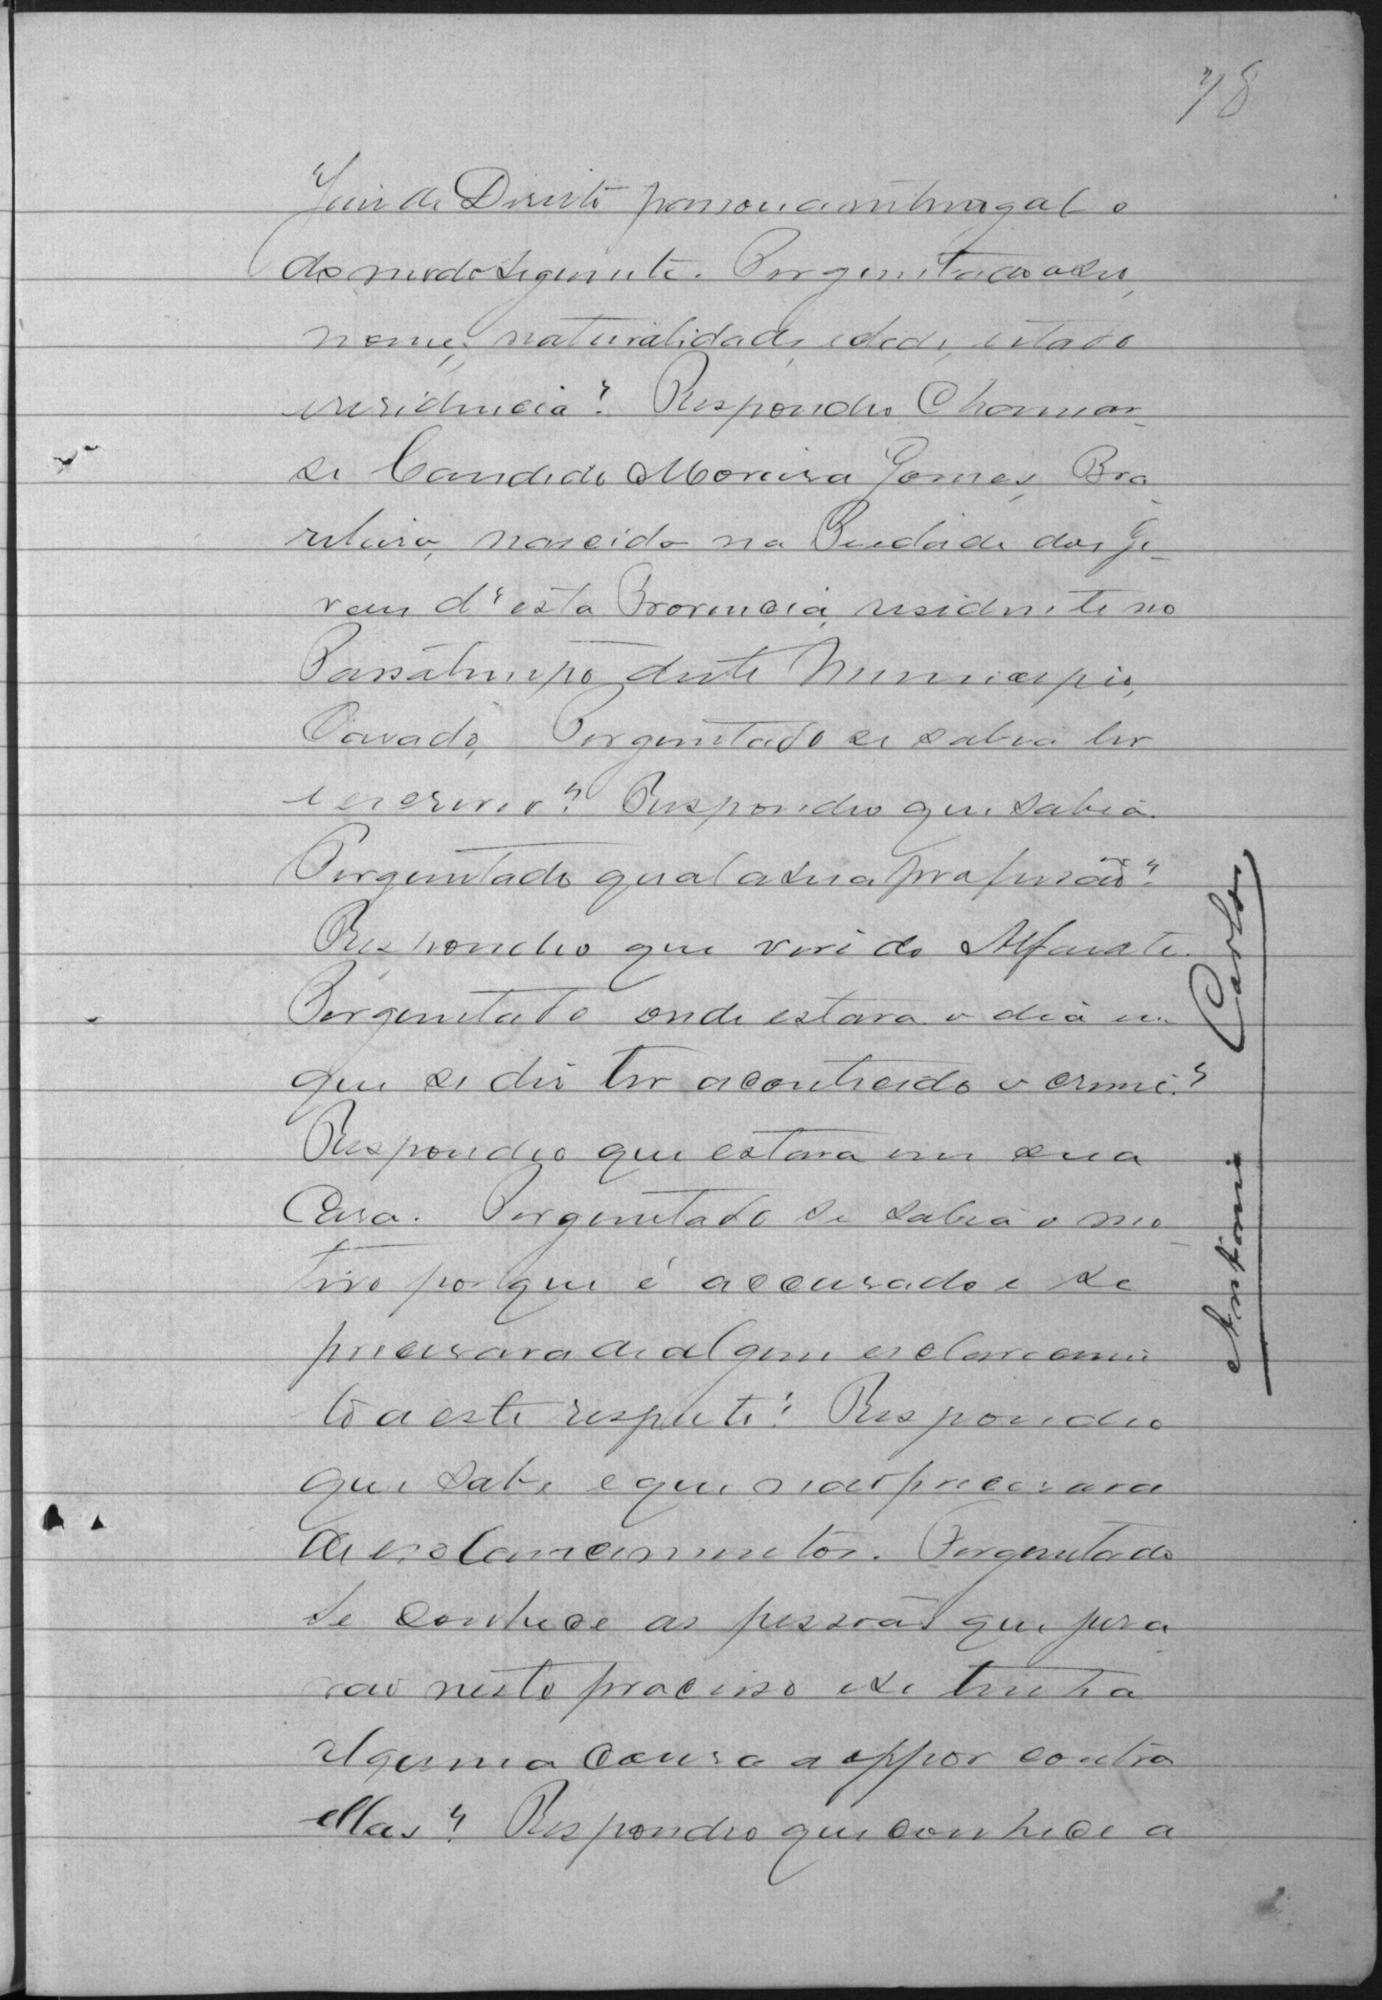 78
Juis de Direito passou a intrrogal o
do modo seguinte. Perguntado o seu
nome, naturalidade, edade, estado
e residencia? Respondeo Chamar-
se Candido Moreira Gomes, Bra-
zileiro, nascido na
d'esta Provincia, residente no
Passatempo deste Municipio,
Casado, Perguntado se sabia ler
e escrever? Respondeo que sabia.
Perguntado qual a sua profissão?
Respondeo que vive de Alfaiate.
Perguntado onde estava o dia em
que se diz ter acontecido o crime?
Respondeo que estava em sua
Casa. Perguntado se sabia o mo-
tivo porque é accusado e se
precisava de algum esclarecimen
to a este respeito? Respondeo
que sabe e que não precisava
de esclarecimentos. Perguntado
se conhece as pessoas que jura
rão neste processo e se tinha
alguma cousa a oppor contra
ellas? Respondeo que conhece a
Antonio Carlos